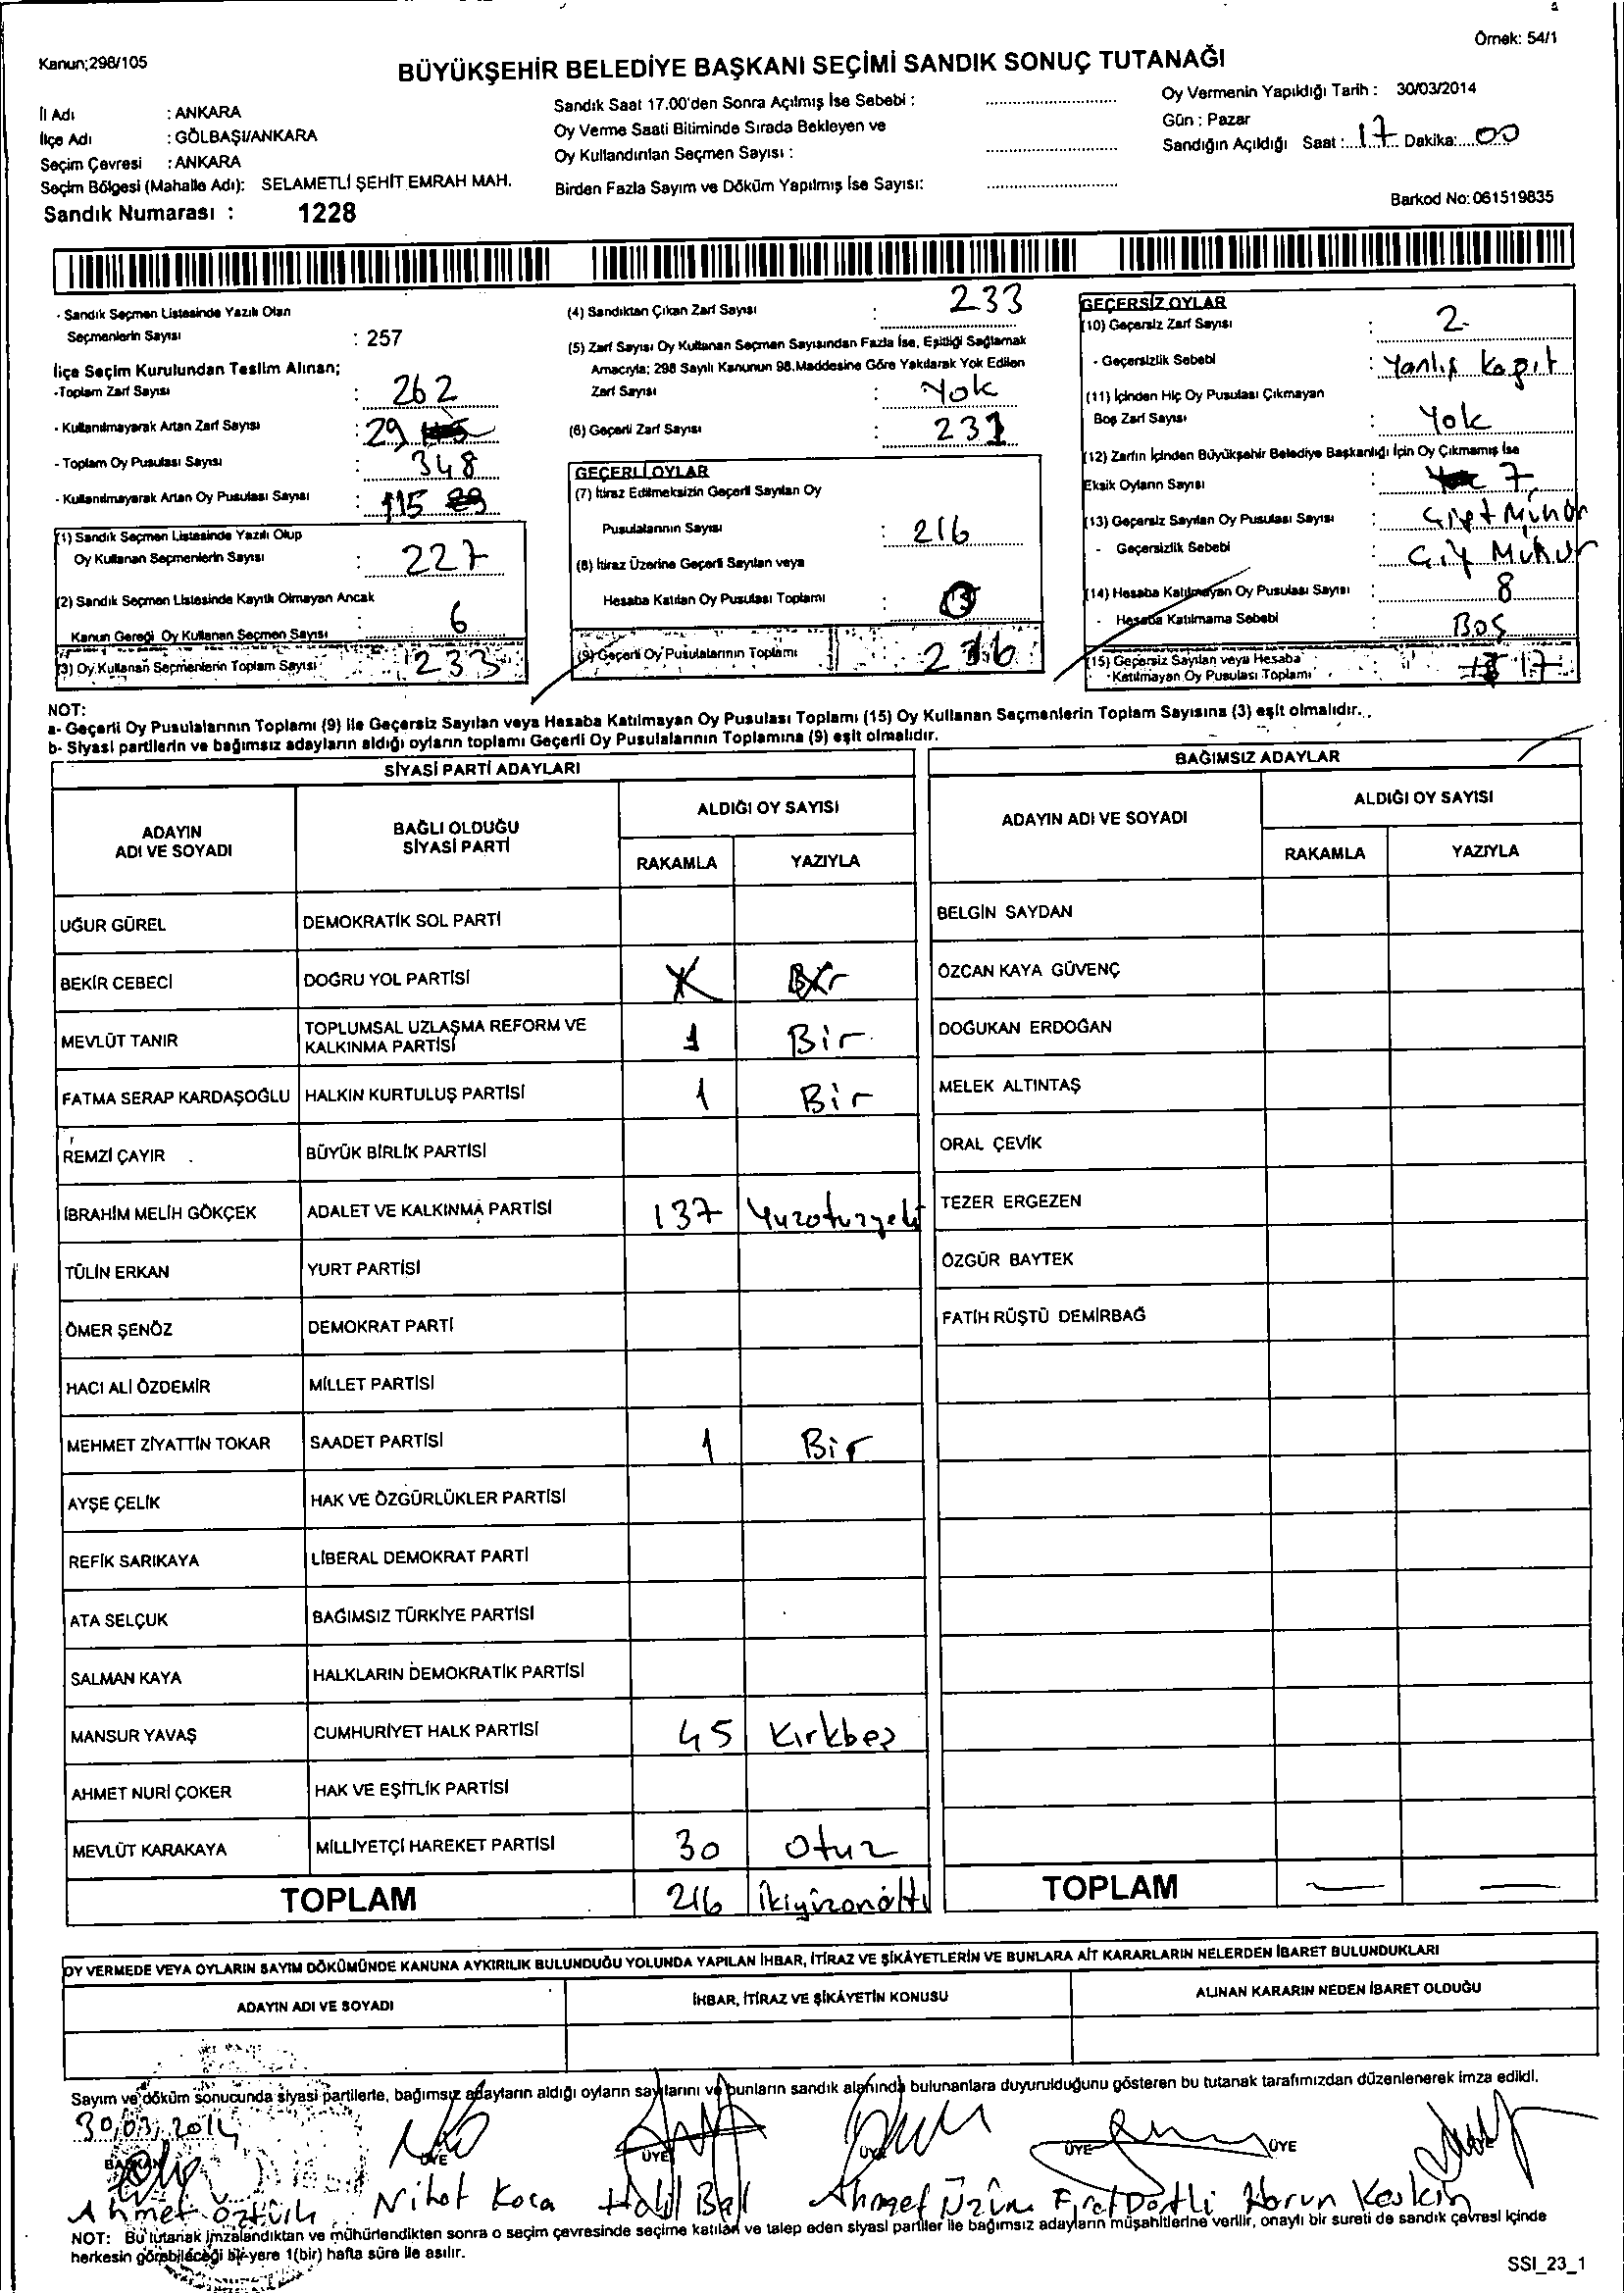 Örnek: 54/1
Kanun;298/105
BÜYÜKŞEHİR BELEDİYE BAŞKANI SEÇİMİ SANDIK SONUÇ TUTANAĞI
İl Adı : ANKARA
İlçe Adı : GÖLBAŞI/ANKARA
Seçim Çevresi : ANKARA
Seçim Bölgesi (Mahalle Adı): SELAMETLİ ŞEHİT EMRAH MAH.
Sandık Numarası : 1228
Sandık Saat 17.00'den Sonra Açılmış İse Sebebi :
Oy Verme Saati Bitiminde Sırada Bekleyen ve
Oy Kullandırılan Seçmen Sayısı :
Birden Fazla Sayım ve Döküm Yapılmış İse Sayısı:
Oy Vermenin Yapıldığı Tarih : 30/03/2014
Gün : Pazar
Sandığın Açıldığı Saat : 17 Dakika: 00
Barkod No: 061519835
- Sandık Seçmen Listesinde Yazılı Olan
Seçmenlerin Sayısı : 257
İlçe Seçim Kurulundan Teslim Alınan;
-Toplam Zarf Sayısı : 262
- Kullanılmayarak Artan Zarf Sayısı : 29
- Toplam Oy Pusulası Sayısı : 348
- Kullanılmayarak Artan Oy Pusulası Sayısı : 115
(1) Sandık Seçmen Listesinde Yazılı Olup
Oy Kullanan Seçmenlerin Sayısı : 227
(2) Sandık Seçmen Listesinde Kayıtlı Olmayan Ancak
Kanun Gereği Oy Kullanan Seçmen Sayısı : 6
(3) Oy Kullanan Seçmenlerin Toplam Sayısı : 233
(4) Sandıktan Çıkan Zarf Sayısı : 233
(5) Zarf Sayısı Oy Kullanan Seçmen Sayısından Fazla İse, Eşitliği Sağlamak
Amacıyla; 298 Sayılı Kanunun 98.Maddesine Göre Yakılarak Yok Edilen
Zarf Sayısı : Yok
(6) Geçerli Zarf Sayısı : 231
GEÇERLİ OYLAR
(7) İtiraz Edilmeksizin Geçerli Sayılan Oy
Pusulalarının Sayısı : 216
(8) İtiraz Üzerine Geçerli Sayılan veya
Hesaba Katılan Oy Pusulası Toplamı :
(9) Geçerli Oy Pusulalarının Toplamı : 216
GEÇERSİZ OYLAR
(10) Geçersiz Zarf Sayısı : 2
- Geçersizlik Sebebi : Yanlış Kağıt
(11) İçinden Hiç Oy Pusulası Çıkmayan
Boş Zarf Sayısı : Yok
(12) Zarfın İçinden Büyükşehir Belediye Başkanlığı İçin Oy Çıkmamış İse
Eksik Oyların Sayısı : 7
(13) Geçersiz Sayılan Oy Pusulası Sayısı : Çift Mühür
- Geçersizlik Sebebi : Çift Mühür
(14) Hesaba Katılmayan Oy Pusulası Sayısı : 8
- Hesaba Katılmama Sebebi : Boş
(15) Geçersiz Sayılan veya Hesaba
Katılmayan Oy Pusulası Toplamı : 17
NOT:
a- Geçerli Oy Pusulalarının Toplamı (9) ile Geçersiz Sayılan veya Hesaba Katılmayan Oy Pusulası Toplamı (15) Oy Kullanan Seçmenlerin Toplam Sayısına (3) eşit olmalıdır.
b- Siyasi partilerin ve bağımsız adayların aldığı oyların toplamı Geçerli Oy Pusulalarının Toplamına (9) eşit olmalıdır.
SİYASİ PARTİ ADAYLARI
ADAYIN ADI VE SOYADI
BAĞLI OLDUĞU SİYASİ PARTİ
ALDIĞI OY SAYISI
RAKAMLA YAZIYLA
UĞUR GÜREL DEMOKRATİK SOL PARTİ
BEKİR CEBECİ DOĞRU YOL PARTİSİ
MEVLÜT TANIR TOPLUMSAL UZLAŞMA REFORM VE KALKINMA PARTİSİ 1 Bir
FATMA SERAP KARDAŞOĞLU HALKIN KURTULUŞ PARTİSİ 1 Bir
REMZİ ÇAYIR BÜYÜK BİRLİK PARTİSİ
İBRAHİM MELİH GÖKÇEK ADALET VE KALKINMA PARTİSİ 137 Yuzotuzyedi
TÜLİN ERKAN YURT PARTİSİ
ÖMER ŞENÖZ DEMOKRAT PARTİ
HACI ALİ ÖZDEMİR MİLLET PARTİSİ
MEHMET ZİYATTİN TOKAR SAADET PARTİSİ 1 Bir
AYŞE ÇELİK HAK VE ÖZGÜRLÜKLER PARTİSİ
REFİK SARIKAYA LİBERAL DEMOKRAT PARTİ
ATA SELÇUK BAĞIMSIZ TÜRKİYE PARTİSİ
SALMAN KAYA HALKLARIN DEMOKRATİK PARTİSİ
MANSUR YAVAŞ CUMHURİYET HALK PARTİSİ 45 Kırkbeş
AHMET NURİ ÇOKER HAK VE EŞİTLİK PARTİSİ
MEVLÜT KARAKAYA MİLLİYETÇİ HAREKET PARTİSİ 30 Otuz
TOPLAM 216 İkiyüzonaltı
BAĞIMSIZ ADAYLAR
ADAYIN ADI VE SOYADI
ALDIĞI OY SAYISI
RAKAMLA YAZIYLA
BELGİN SAYDAN
ÖZCAN KAYA GÜVENÇ
DOĞUKAN ERDOĞAN
MELEK ALTINTAŞ
ORAL ÇEVİK
TEZER ERGEZEN
ÖZGÜR BAYTEK
FATİH RÜŞTÜ DEMİRBAĞ
TOPLAM — —
OY VERMEDE VEYA OYLARIN SAYIM DÖKÜMÜNDE KANUNA AYKIRILIK BULUNDUĞU YOLUNDA YAPILAN İHBAR, İTİRAZ VE ŞİKÂYETLERİN VE BUNLARA AİT KARARLARIN NELERDEN İBARET BULUNDUKLARI
ADAYIN ADI VE SOYADI İHBAR, İTİRAZ VE ŞİKÂYETİN KONUSU ALINAN KARARIN NEDEN İBARET OLDUĞU
Sayım ve döküm sonucunda siyasi partilerle, bağımsız adayların aldığı oyların sayılarını ve bunların sandık alanında bulunanlara duyurulduğunu gösteren bu tutanak tarafımızdan düzenlenerek imza edildi.
30/03/2014
BAŞKAN ÜYE ÜYE ÜYE ÜYE ÜYE
Ahmet Öztürk Nihat Koca Halil Bal Ahmet Üzüm Fırat Dörtli Harun Keskin
NOT: Bu tutanak imzalandıktan ve mühürlendikten sonra o seçim çevresinde seçime katılan ve talep eden siyasi partiler ile bağımsız adayların müşahitlerine verilir, onaylı bir sureti de sandık çevresi içinde
herkesin görebileceği bir yere 1(bir) hafta süre ile asılır.
SSI_23_1